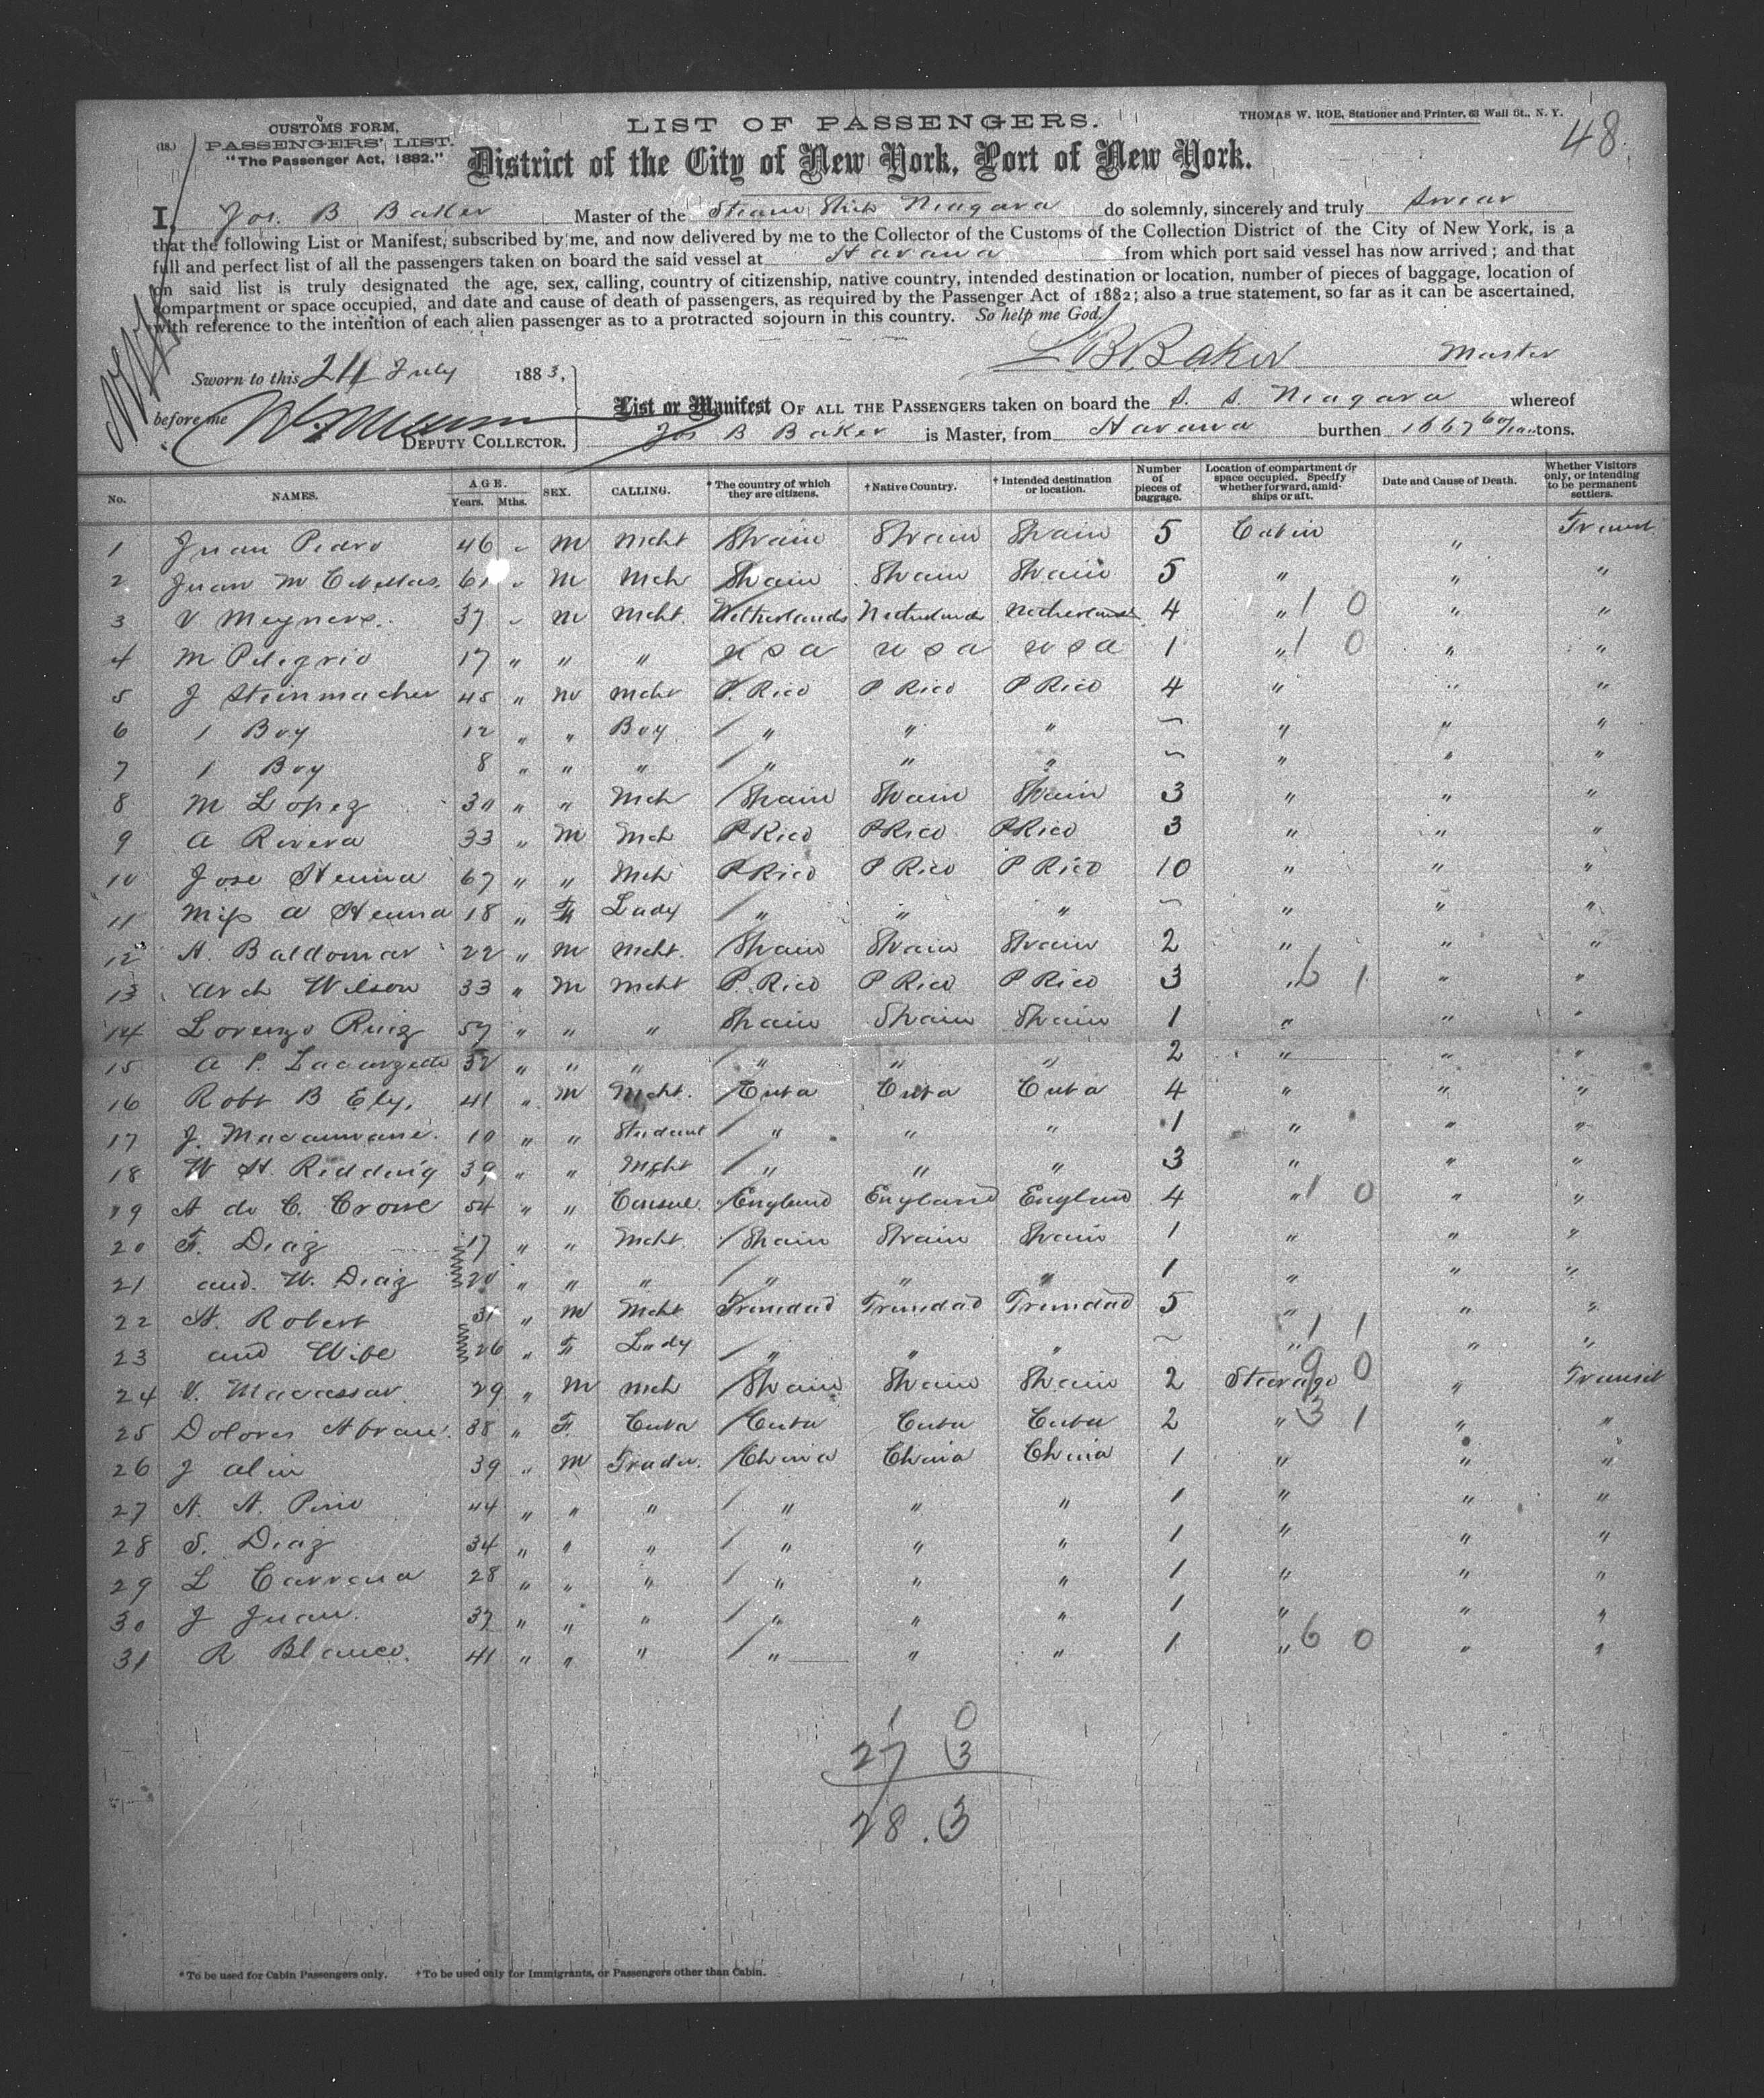 CUSTOMS FORM,
(18.) PASSENGERS' LIST.
"The Passenger Act, 1882."
LIST OF PASSENGERS.
THOMAS W. ROE, Stationer and Printer, 63 Wall St., N. Y.
48
District of the City of New York, Port of New York.
I, Jos. B Baker Master of the Steam Ship Niagara do solemnly, sincerely and truly swear
that the following List or Manifest, subscribed by me, and now delivered by me to the Collector of the Customs of the Collection District of the City of New York, is a
full and perfect list of all the passengers taken on board the said vessel at Havana from which port said vessel has now arrived; and that
on said list is truly designated the age, sex, calling, country of citizenship, native country, intended destination or location, number of pieces of baggage, location of
compartment or space occupied, and date and cause of death of passengers, as required by the Passenger Act of 1882; also a true statement, so far as it can be ascertained,
with reference to the intention of each alien passenger as to a protracted sojourn in this country. So help me God.
B. Baker Master
Sworn to this 24 July 1883,
before me
DEPUTY COLLECTOR.
List or Manifest OF ALL THE PASSENGERS taken on board the S. S. Niagara whereof
Jos B Baker is Master, from Havana burthen 1667 tons.
No. NAMES. AGE. Years. Mths. SEX. CALLING. * The country of which they are citizens. † Native Country. † Intended destination or location. Number of pieces of baggage. Location of compartment or space occupied. Specify whether forward, amidships or aft. Date and Cause of Death. Whether Visitors only, or intending to be permanent settlers.
1 Juan Pedro 46 " M Mcht Spain Spain Spain 5 Cabin " Transit
2 Juan M 61 " M Mch Spain Spain Spain 5 " " "
3 V Meyners 37 " M Mcht. Netherlands Netherlands Netherlands 4 " 1 0 " "
4 M Pelegrio 17 " " " U S A U S A U S A 1 " 1 0 " "
5 J Steinmacher 45 " M Mcht P. Rico P Rico P Rico 4 " " "
6 1 Boy 12 " " Boy " " " ~ " " "
7 1 Boy 8 " " " " " " ~ " " "
8 M Lopez 30 " " Mch Spain Spain Spain 3 " " "
9 A Rivera 33 " M Mch P Rico P Rico P Rico 3 " " "
10 Jose Henna 67 " " Mch P Rico P Rico P Rico 10 " " "
11 Miss A Henna 18 " F Lady " " " ~ " " "
12 H. Baldomar 22 " M Mcht. Spain Spain Spain 2 " " "
13 Arch Wilson 33 " M Mcht P. Rico P Rico P Rico 3 " 6 1 " "
14 Lorenzo Ruiz 57 " " " Spain Spain Spain 1 " " "
15 A P. 52 " " " " " " 2 " " "
16 Robt B Ely. 41 " M Mcht. Cuba Cuba Cuba 4 " " "
17 J. 10 " " Student " " " 1 " " "
18 W H Redding 39 " " Mcht " " " 3 " " "
19 A de C. Crowe 54 " " Consul. England England England 4 " 1 0 " "
20 F. Diaz 17 " " Mcht. Spain Spain Spain 1 " " "
21 and. W. Diaz 20 " " " " " " 1 " " "
22 H. Robert 31 " M Mcht Trinidad Trinidad Trinidad 5 " " "
23 and Wife 26 " F Lady " " " ~ " 1 1 " "
24 V. Macassar 29 " M Mch Spain Spain Spain 2 Steerage 9 0 " Transit
25 Dolores Abrau. 38 " F. Cuba Cuba Cuba Cuba 2 " 3 1 " "
26 J Alin 39 " M Trader. China China China 1 " " "
27 A. A. Pino 44 " " " " " " 1 " " "
28 S. Diaz 34 " " " " " " 1 " " "
29 L Carrena 28 " " " " " " 1 " " "
30 J Juan. 37 " " " " " " 1 " " "
31 R Blanco. 41 " " " " " " 1 " 6 0 " "
1 0
27 3
28. 3
* To be used for Cabin Passengers only. † To be used only for Immigrants, or Passengers other than Cabin.